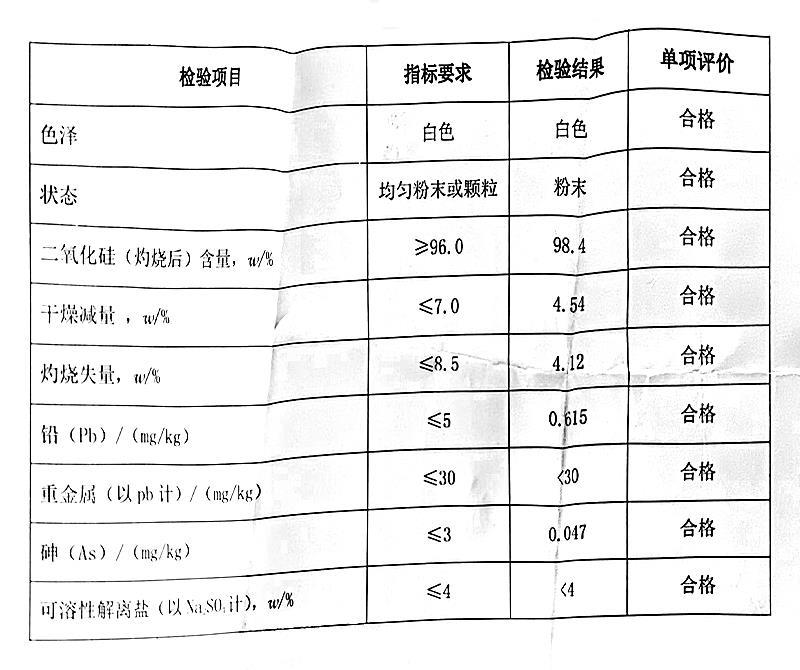 检验项目 指标要求 检验结果 单项评价
色泽 白色 白色 合格
状态 均匀粉末或颗粒 粉末 合格
二氧化硅（灼烧后）含量，w/% ≥96.0 98.4 合格
干燥减量 ，w/% ≤7.0 4.54 合格
灼烧失量，w/% ≤8.5 4.12 合格
铅（Pb）/（mg/kg） ≤5 0.615 合格
重金属（以 pb 计）/（mg/kg） ≤30 <30 合格
砷（As）/（mg/kg） ≤3 0.047 合格
可溶性解离盐（以 Na₂SO₄计），w/% ≤4 <4 合格